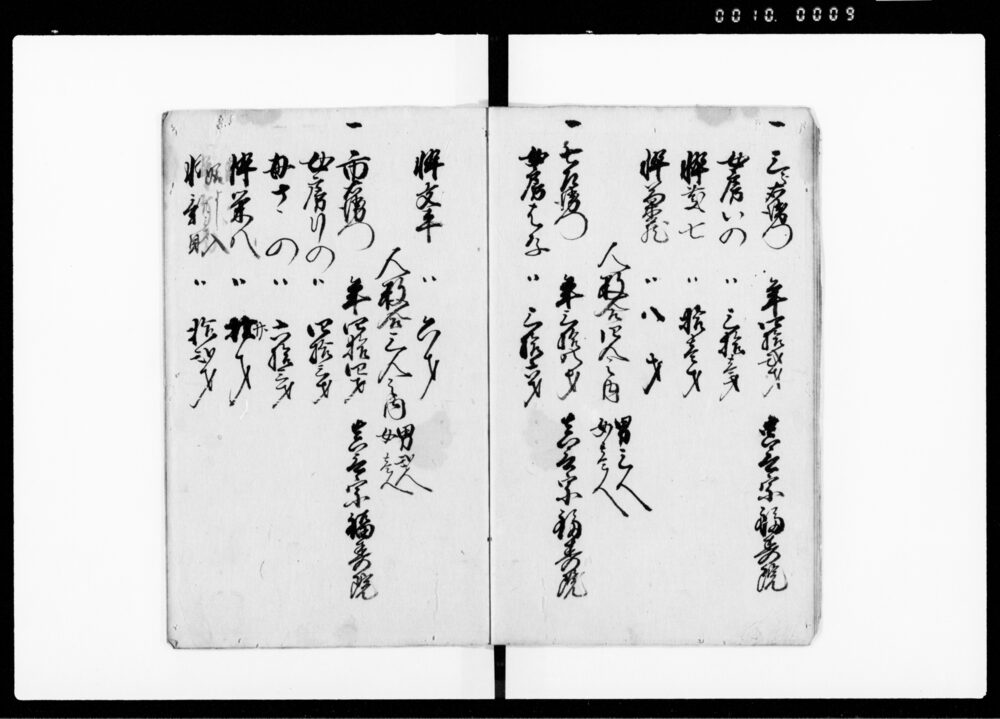 0010.0009
一 三右衛門 年四拾弐才 真言宗福寿院
女房いの 〃 三拾三才
悴 七 〃 拾壱才
悴 〃 八才
人数合四人之内 男三人 女壱人
一 右衛門 年三拾八才 真言宗福寿院
女房 〃 三拾六才
悴文平 〃 六才
人数合三人之内 男弐人 女壱人
一 市右衛門 年四拾四才 真言宗福寿院
女房りの 〃 四拾三才
母さの 〃 六拾三才
悴栄八 〃 廿才
〃 拾弐才